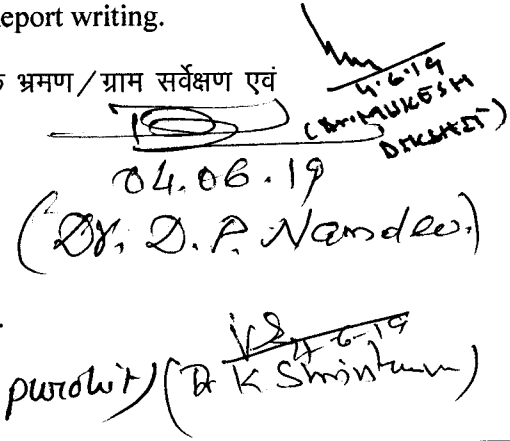 eport writing.
भ्रमण/ग्राम सर्वेक्षण एवं
4.6.19
(Dr. MUKESH
DIKSHIT)
04.06.19
(Dr. D. P. Namdeo.)
4-6-19
purohit) (Dr K